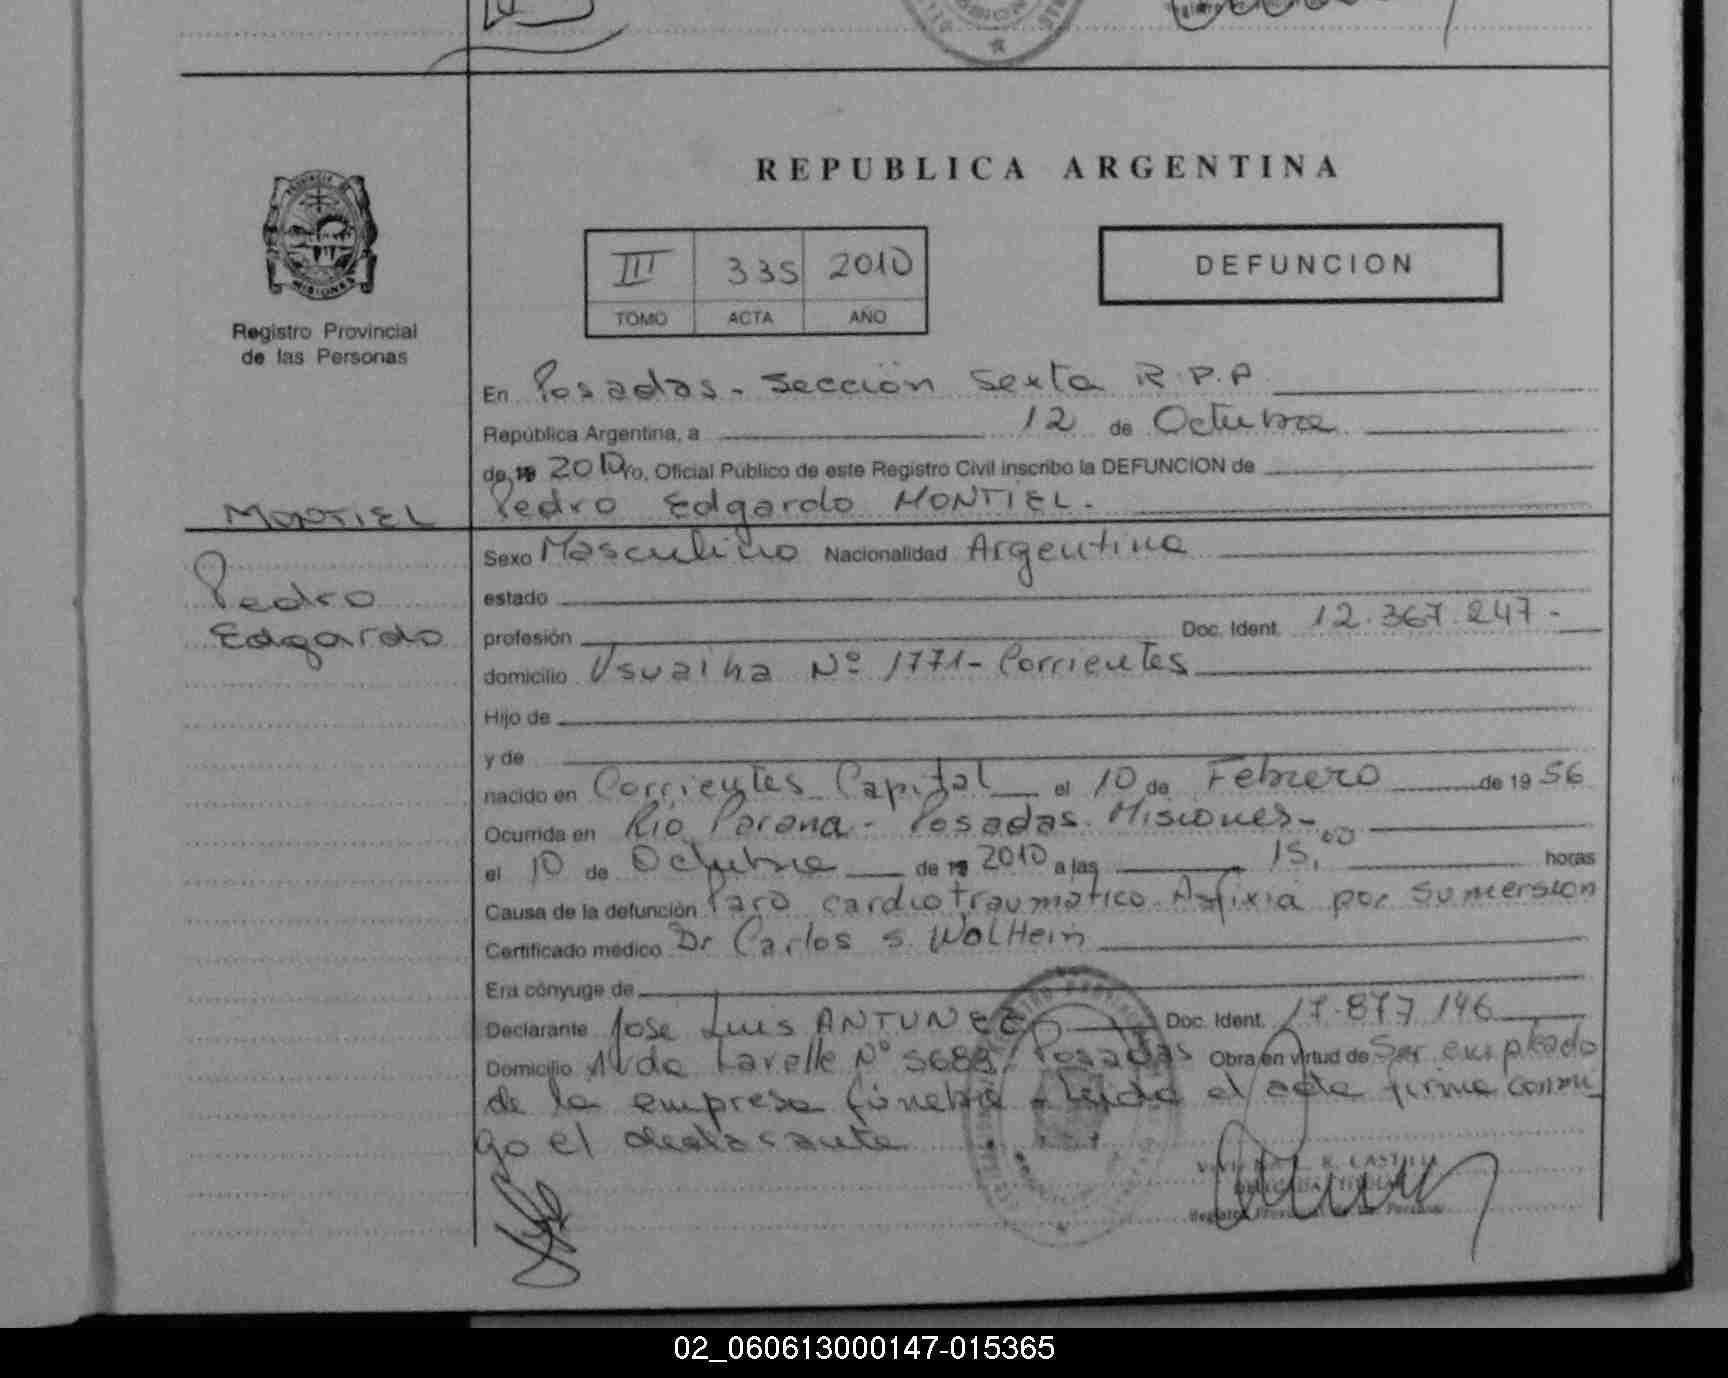 REPUBLICA ARGENTINA
III 335 2010
TOMO ACTA AÑO
DEFUNCION
PROVINCIA DE
MISIONES
Registro Provincial
de las Personas
En Posadas - Sección Sexta R.P.P
República Argentina, a 12 de Octubre
de 19 2010 Yo, Oficial Público de este Registro Civil inscribo la DEFUNCION de
MONTIEL Pedro Edgardo MONTIEL.
Sexo Masculino Nacionalidad Argentina
Pedro estado
Edgardo profesión Doc. Ident. 12.367.247-
domicilio Usuaiha Nº 1771- Corrientes
Hijo de
y de
nacido en Corrientes Capital el 10 de Febrero de 1956
Ocurrida en Rio Parana - Posadas. Misiones-
el 10 de Octubre de 19 2010 a las 15,00 horas
Causa de la defunción Paro cardiotraumatico Asfixia por sumersion
Certificado médico Dr Carlos S. WolHein
Era cónyuge de
Declarante José Luis ANTUNEZ Doc. Ident. 17.877.146
Domicilio Avda Lavalle Nº 5688 Posadas Obra en virtud de Ser empleado
de la empresa fúnebre - leida el acta firma conmi-
go el declarante
R. CASTILLO
02_060613000147-015365